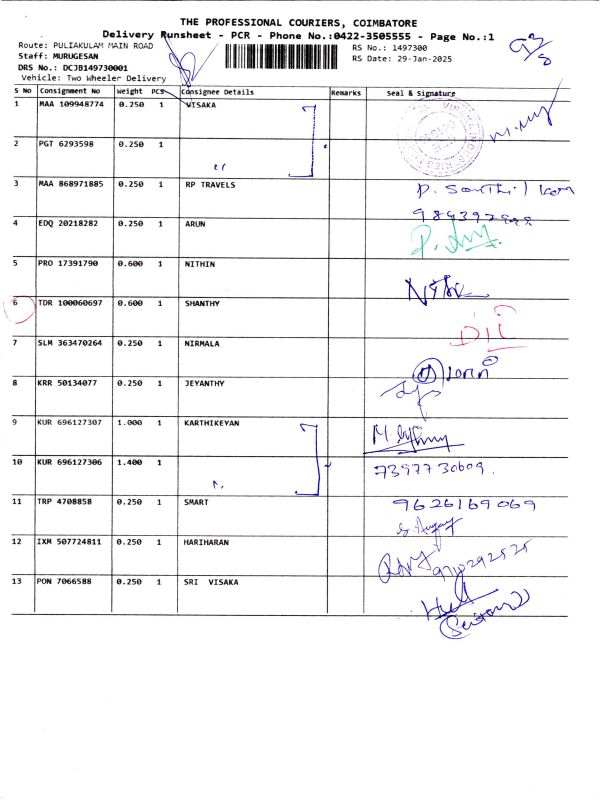 THE PROFESSIONAL COURIERS, COIMBATORE
Delivery Runsheet - PCR - Phone No.:0422-3505555 - Page No.:1
Route: PULIAKULAM MAIN ROAD RS No.: 1497300
Staff: MURUGESAN RS Date: 29-Jan-2025
DRS No.: DCJB149730001
Vehicle: Two Wheeler Delivery
S No Consignment No Weight PCS Consignee Details Remarks Seal & Signature
1 MAA 109948774 0.250 1 VISAKA
2 PGT 6293598 0.250 1
3 MAA 868971885 0.250 1 RP TRAVELS
4 EDQ 20218282 0.250 1 ARUN
5 PRO 17391790 0.600 1 NITHIN
6 TDR 100060697 0.600 1 SHANTHY
7 SLM 363470264 0.250 1 NIRMALA
8 KRR 50134077 0.250 1 JEYANTHY
9 KUR 696127307 1.000 1 KARTHIKEYAN
10 KUR 696127306 1.400 1 7397730609
11 TRP 4708858 0.250 1 SMART 9626169069
12 IXM 507724811 0.250 1 HARIHARAN 9710292525
13 PON 7066588 0.250 1 SRI VISAKA